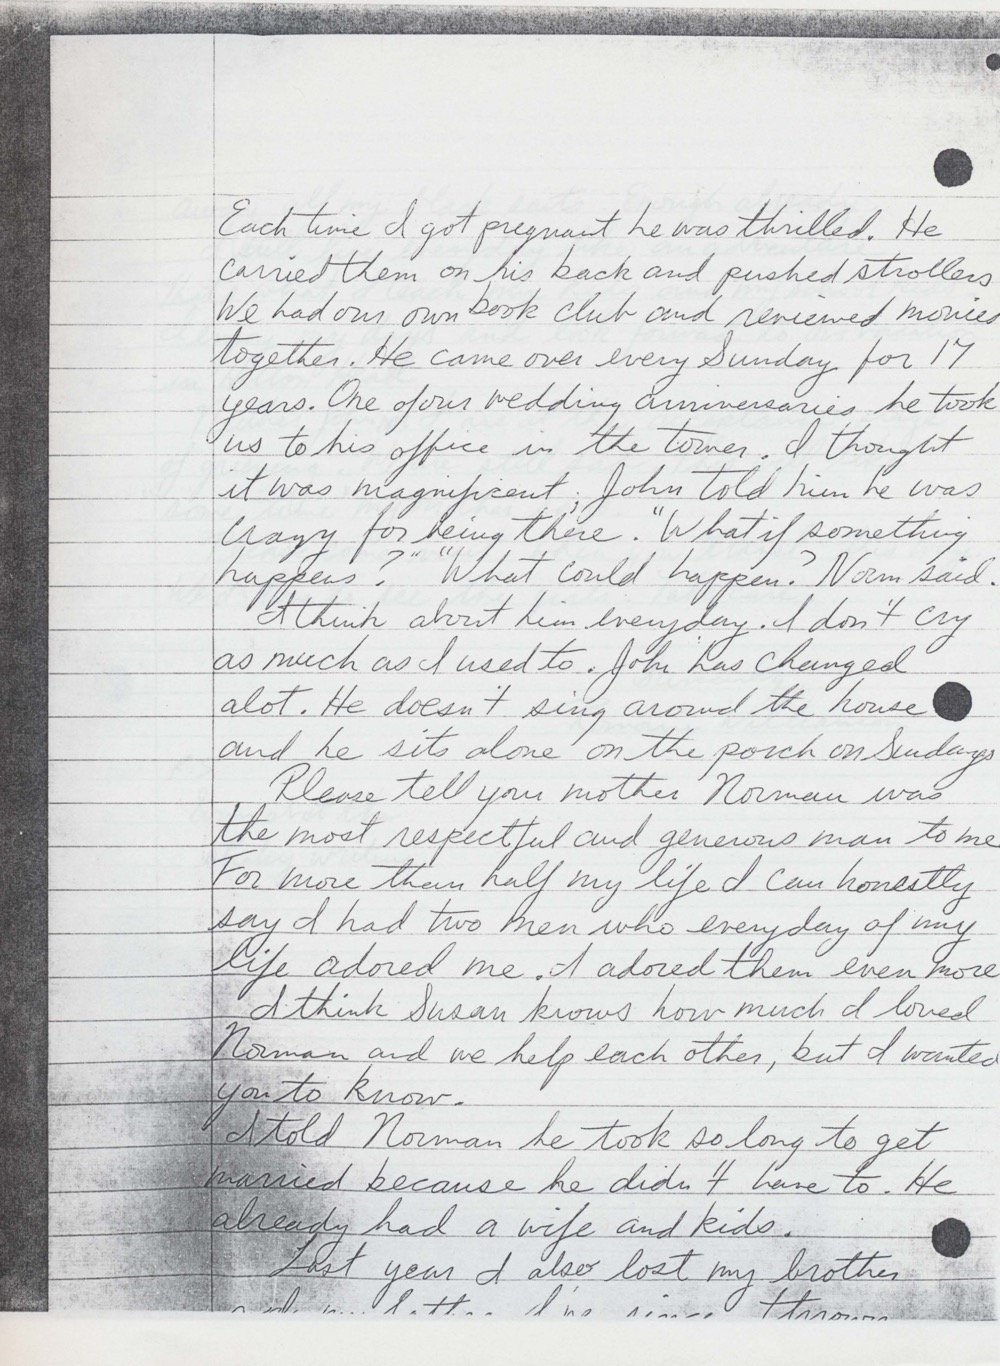 Each time I got pregnant he was thrilled. He
carried them on his back and pushed strollers
We had our own book club and reviewed movies
together. He came over every Sunday for 17
years. One of our wedding anniversaries he took
us to his office in the tower. I thought
it was magnificent; John told him he was
crazy for being there. "What if something
happens?" "What could happen? Norm said.
I think about him everyday. I don't cry
as much as I used to. John has changed
alot. He doesn't sing around the house
and he sits alone on the porch on Sundays
Please tell your mother Norman was
the most respectful and generous man to me
For more than half my life I can honestly
say I had two men who everyday of my
life adored me. I adored them even more
I think Susan knows how much I loved
Norman and we help each other, but I wanted
you to know.
I told Norman he took so long to get
married because he didn't have to. He
already had a wife and kids.
Last year I also lost my brother